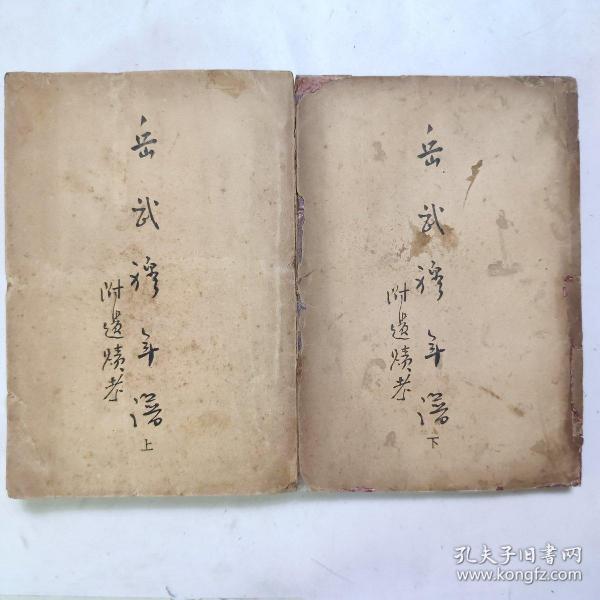 岳武穆年譜
附遺蹟考
上
岳武穆年譜
附遺蹟考
下
孔夫子旧书网
www.kongfz.com